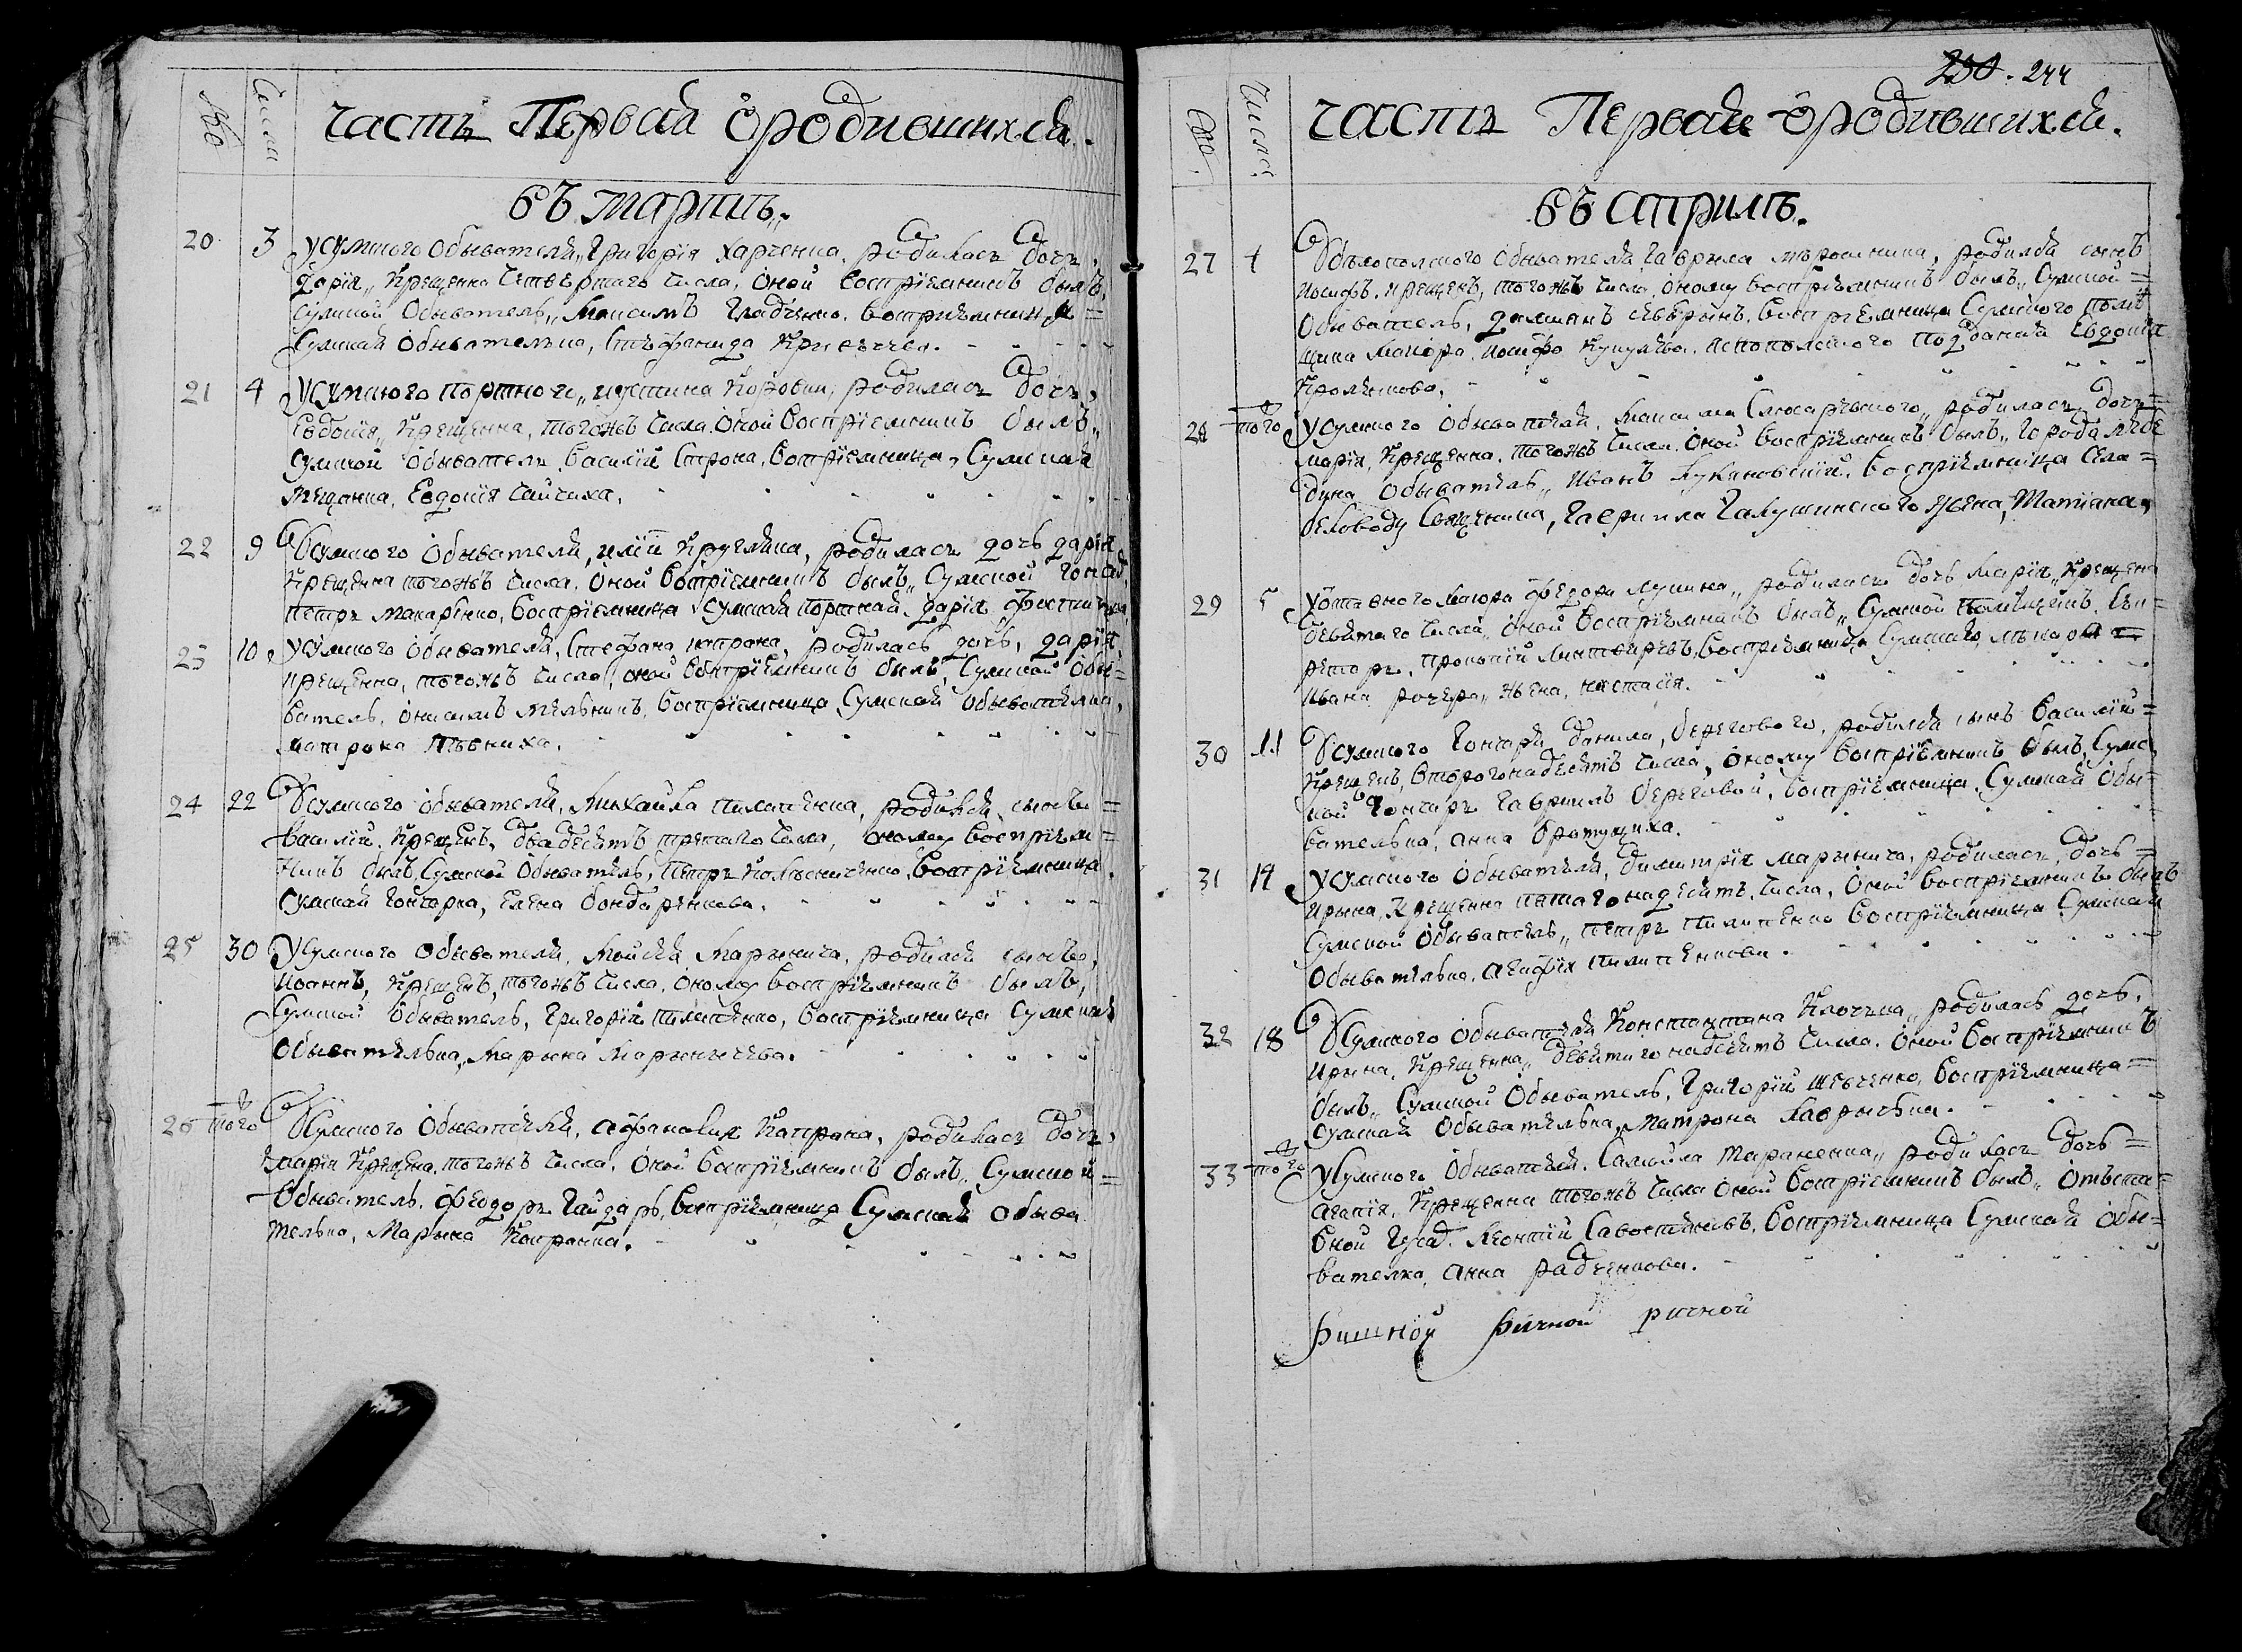 №
Числа
Часть Первая ородившихся.
въ мартѣ.
20 3 Усумского Обывателя, Григорія Харченка, родилась дочь,
дарія, Крещенна Четвертаго Числа, Оной Воспріемникъ былъ,
Сумской Обыватель, Максимъ Гладченко. Воспріемница =
Сумская Обывателька, Стефанида
21 4 Усумского портного, иустина Коровки, родилась дочь,
Евдокія, Крещенна, тогожъ Числа. Оной Воспріемникъ былъ,
Сумской Обыватель Василій Строка. Воспріемница, Сумская
мещанка, Евдокія Чайчиха.
22 9 Усумского Обывателя, иліи Кругляка, родилась дочь дарія
Крещенна тогожъ Числа. Оной Воспріемникъ былъ, Сумской
петръ макаренко, Воспріемница Сумская портная дарія
23 10 Усумского Обывателя, Стефана капрана, родилась дочь, дарія,
крещенна, тогожъ Числа, оной Воспріемникъ былъ, Сумской Обы=
ватель, онисимъ мельникъ, Воспріемница Сумская Обывателька,
матрона
24 22 Усумского Обывателя, Михайла пилипенка, родился сынъ =
Василій. Крещенъ, двадесятъ третаго Числа, оному Воспріем=
никъ былъ, Сумской Обыватель, Петръ Колесниченко, Воспріемница
Сумская Гончарка, Елена бондаренкова.
25 30 Усумского Обывателя, Мойсея Марынича, родился сынъ,
Иоаннъ, Крещенъ, тогожъ Числа. Оному Воспріемникъ былъ,
Сумской Обыватель, Григорій пилипенко, Воспріемница Сумская
Обывателька, Марына Марыничева.
26 того Усумского Обывателя, афанасія Капрана, родилась дочь,
марія Крещена, тогожъ Числа, Оной Воспріемникъ былъ, Сумской =
Обыватель, феодоръ Гайдаръ, Воспріемница Сумская обыва
телька, Марына Капранка.
230. 244
№
Числа
Часть Первая ородившихся.
въ априлѣ.
27 4 Обывателя Гаврыла мирошника, родился сынъ
Иосифъ, крещенъ, тогожъ Числа, оному воспріемникъ былъ, Сумской =
Обыватель, дамианъ Воспріемница Сумского помѣ
щика Маиора иосифа подданая Евдокія
28 того Усумского Обывателя, Максима Слюсаревского, родилась дочь =
марія, Крещенна, тогожъ Числа, Оной Воспріемникъ былъ, города лебе
дина Обыватель, Иванъ Кукановскій, Воспріемница Села =
беловодъ Священика, Гаврила Галушинского жена, Татіана,
29 5 Маиора федора родилась дочь Марія, Крещена
девятаго Числа, Оной Воспріемникъ былъ, Сумской Секре=
таръ, прокопій Воспріемница Сумского лекара
ивана рочера, жена, настасія.
30 11 Усумского Гончара данила, берегового, родился сынъ Василій =
Крещенъ, Второгонадесятъ Числа, оному Воспріемникъ былъ, Сумс
кой Гончаръ Гавріилъ береговой, Воспріемница Сумская Обы=
вателька, анна братущиха.
31 14 Усумского Обывателя, димитрія марынича, родилась, дочь =
Ирына, Крещенна пятагонадесятъ Числа, Оной Воспріемникъ былъ
Сумской Обыватель, петръ пилипенко Воспріемница Сумская
Обывателька, агафія пилипенкова.
32 18 Усумского Обывателя Константина Клочка, родилась дочь,
Ирына, Крещенна, девятагонадесятъ Числа. Оной Воспріемникъ
былъ, Сумской Обыватель, Григорій шевченко, Воспріемница =
Сумская Обывателька, матрона
33 того Усумского Обывателя. Самойла Тараненка, родилась дочь =
агапія, Крещенна тогожъ Числа Оной Воспріемникъ былъ, Отъста=
вной Леонтій Савостяновъ, Воспріемница Сумская Обы=
вателка, анна радченкова.